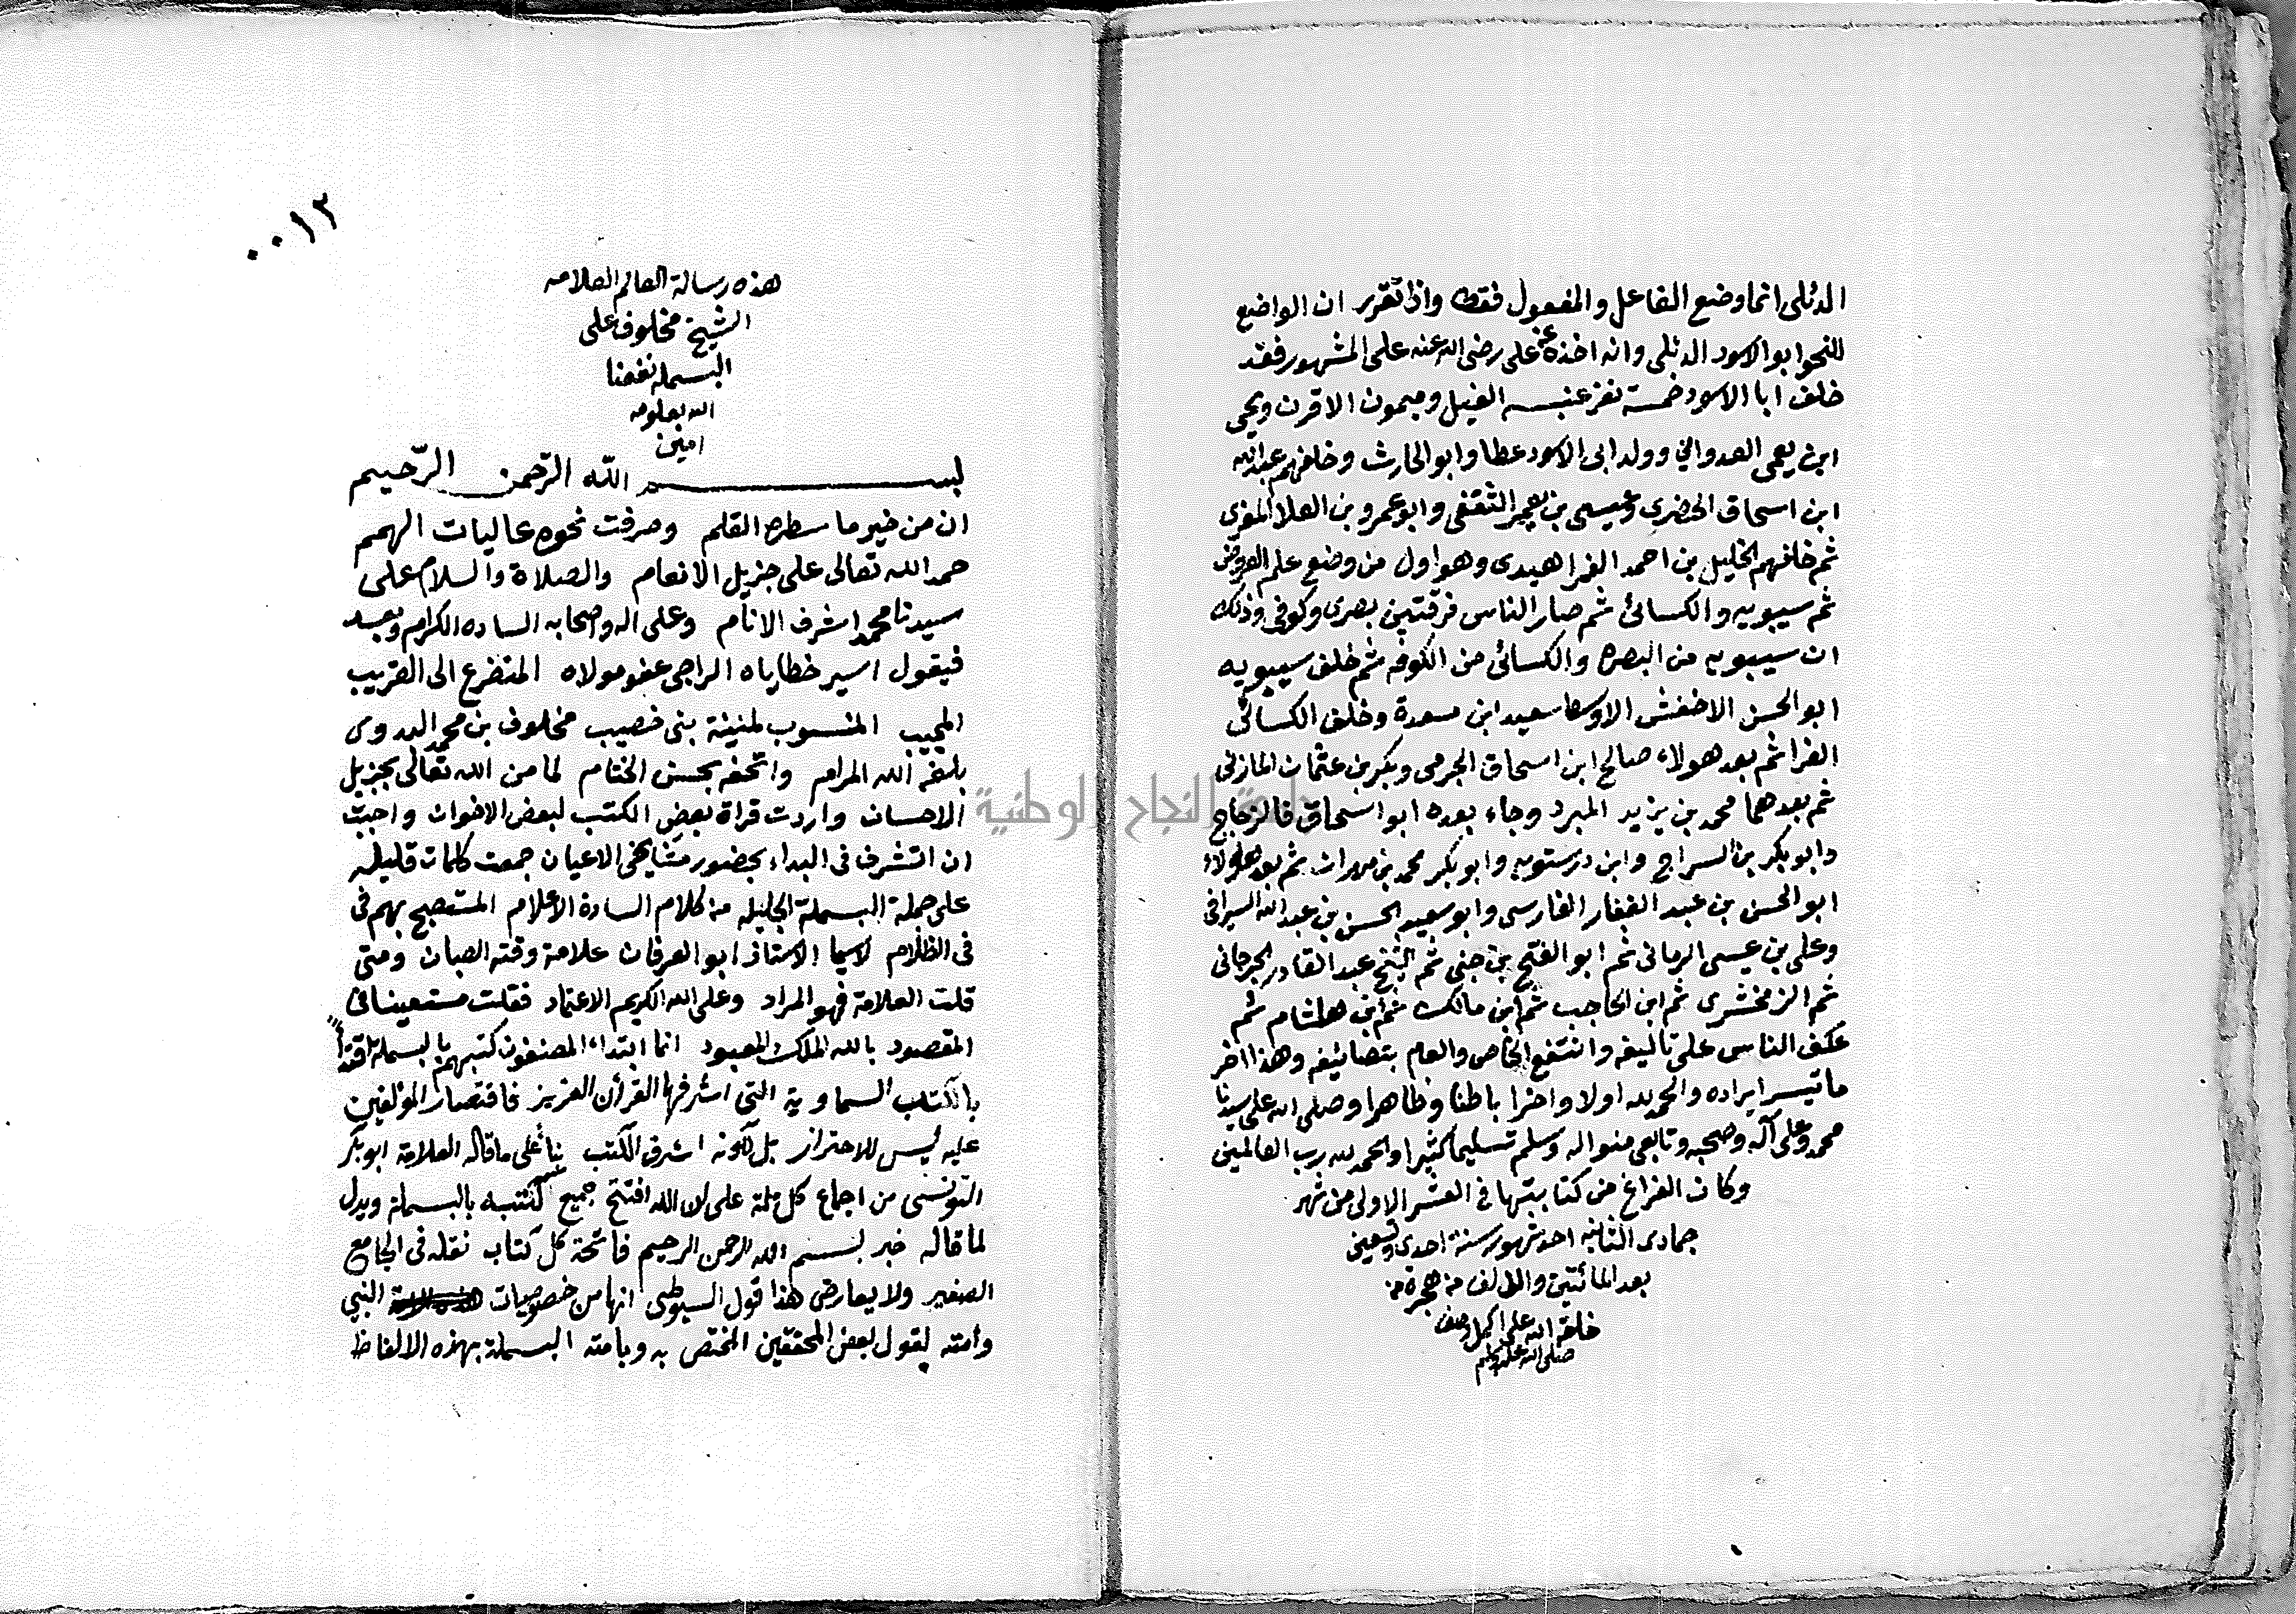 الدئلى انما وضع الفاعل والمفعول فقط واذا تقرر ان الواضع
للنحو ابو الاسود الدئلى وانه اخذه عن على رضى الله عنه على المشهور فقد
خلف ابا الاسود خمسة نفر عنبسه الفيل وميمون الاقرن ويحي
ابن يعمى العدواني وولد ابى الاسود عطا وابو الحارث وخلفهم عبد الله
ابن اسحاق الحضرى وعيسى بن عمير الثقفى وابو عمرو بن العلا المقرى
ثم خلفهم الخليل بن احمد الفراهيدى وهو اول من وضع علم العروض
ثم سيبويه والكسائى ثم صار الناس فرقتين بصرى وكوفى وذلك
ان سيبويه من البصره والكسائى من الكوفه ثم خلف سيبويه
ابو الحسن الاخفش الاوسط سعيد ابن مسعدة وخلف الكسائى
الفرا ثم بعد هولاء صالح ابن اسحاق الجرمى وبكر بن عثمان المازنى
ثم بعدهما محمد بن يزيد المبرد وجاء بعده ابو اسحاق فالزجاج
وابو بكر بن السراج وابن درستويه وابو بكر محمد بن مهران ثم بعد هولاء
ابو الحسن بن عبد الغفار الفارسى وابو سعيد الحسن بن عبد الله السيرافى
وعلى بن عيسى الرمانى ثم ابو الفتح بن جنى ثم الشيخ عبد القادر الجرجانى
ثم الزمخشرى ثم ابن الحاجب ثم ابن مالك ثم ابن هشام ثم
عكف الناس على تاليفه وانتفع الخاص والعام بتصانيفه وهذا اخر
ما تيسر ايراده والحمد لله اولا واخرا باطنا وظاهرا وصلى الله على سيدنا
محمد وعلى آله وصحبه وتابعى منواله وسلم تسليما كثيرا والحمد لله رب العالمين
وكان الفراغ من كتابتها فى العشر الاولى من شهر
جمادى الثانيه احد شهور سنة احدى وتسعين
بعد المائتين والالف من هجرة من
خلقه الله على اكمل وصف
صلى الله عليه وسلم
٠٠١٢
هذه رسالة العالم العلامه
الشيخ مخلوف على
البسمله نفعنا
الله بعلومه
امين
بسم الله الرّحمن الرّحيم
ان من خير ما سطره القلم وصرفت نحوه عاليات الهمم
حمد الله تعالى على جزيل الانعام والصلاة والسلام على
سيدنا محمد اشرف الانام وعلى اله واصحابه الساده الكرام وبعد
فيقول اسير خطاياه الراجى عفو مولاه المتضرع الى القريب
المجيب المنسوب لمنية بنى خصيب مخلوف بن محمد البدوى
بلغه الله المرام واتحفه بحسن الختام لما من الله تعالى بجزيل
الاحسان واردت قراة بعض الكتب لبعض الاخوان واحببت
ان اتشرف فى البداء بحضور مشايخى الاعيان جمعت كلمات قليله
على جملة البسملة الجليله من كلام السادة الاعلام المستصبح بهم فى
فى الظلام لاسيما الاستاذ ابو العرفان علامة وقته الصبان ومتى
قلت العلامة فهو المراد وعلى الله الكريم الاعتماد فقلت مستعينا فى
المقصود بالله الملك المعبود انما ابتداء المصنفون كتبهم بالبسملة اقتداً
بالكتب السماوية التى اشرفها القرأن العزيز فاقتصار المؤلفين
عليه ليس للاحتراز بل لكونه اشرف الكتب بناً على ما قاله العلامة ابو بكر
التونسى من اجماع كل ملة على ان الله افتتح جميع كتبه بالبسملة ويدل
لما قاله خبر بسم الله الرحمن الرحيم فاتحة كل كتاب نقله فى الجامع
الصغير ولا يعارض هذا قول السيوطى انها من خصوصيات النبي
وامته لقول بعض المحققين المختص به وبامته البسملة بهذه الالفاظ
جامعة النجاح الوطنية